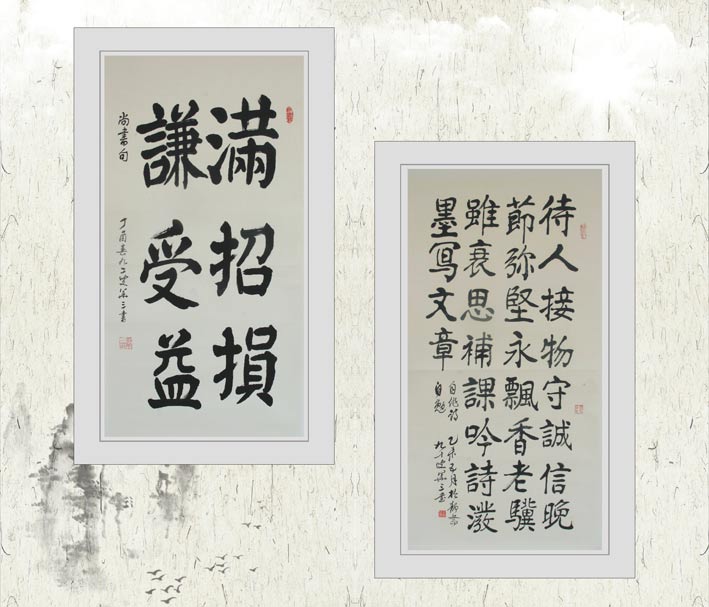 滿招損
謙受益
尚書句
丁酉春九二叟三書
待人接物守誠信晚
節弥堅永飄香老驥
雖衰思補課吟詩潑
墨写文章
自作詩
自勉
乙未五月於
九十叟三書